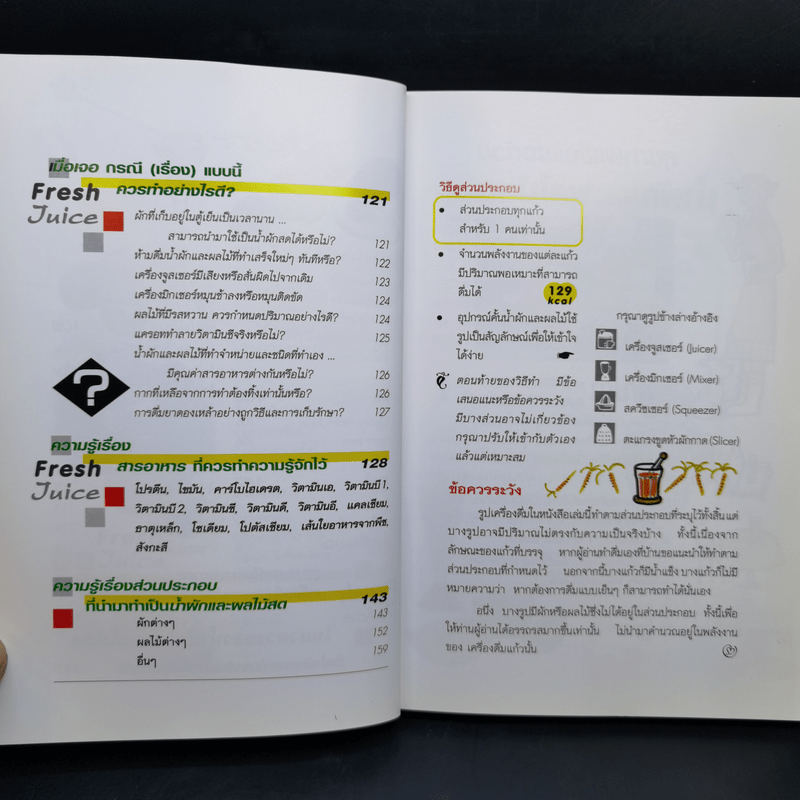 เมื่อเจอ กรณี (เรื่อง) แบบนี้
Fresh ควรทำอย่างไรดี? 121
Juice
ผักที่เก็บอยู่ในตู้เย็นเป็นเวลานาน ...
สามารถนำมาใช้เป็นน้ำผักสดได้หรือไม่? 121
ห้ามดื่มน้ำผักและผลไม้ที่ทำเสร็จใหม่ๆ ทันทีหรือ? 122
เครื่องจูสเซอร์มีเสียงหรือสั่นผิดไปจากเดิม 123
เครื่องมิกเซอร์หมุนช้าลงหรือหมุนติดขัด 124
ผลไม้ที่มีรสหวาน ควรกำหนดปริมาณอย่างไรดี? 124
แครอททำลายวิตามินซีจริงหรือไม่? 125
น้ำผักและผลไม้ที่ทำจำหน่ายและชนิดที่ทำเอง ...
มีคุณค่าสารอาหารต่างกันหรือไม่? 126
กากที่เหลือจากการทำต้องทิ้งเท่านั้นหรือ? 126
การดื่มยาดองเหล้าอย่างถูกวิธีและการเก็บรักษา? 127
?
ความรู้เรื่อง
Fresh สารอาหาร ที่ควรทำความรู้จักไว้ 128
Juice
โปรตีน, ไขมัน, คาร์โบไฮเดรต, วิตามินเอ, วิตามินบี 1,
วิตามินบี 2, วิตามินซี, วิตามินดี, วิตามินอี, แคลเซียม,
ธาตุเหล็ก, โซเดียม, โปตัสเซียม, เส้นใยอาหารจากพืช,
สังกะสี
ความรู้เรื่องส่วนประกอบ
ที่นำมาทำเป็นน้ำผักและผลไม้สด 143
ผักต่างๆ 143
ผลไม้ต่างๆ 152
อื่นๆ 159
วิธีดูส่วนประกอบ
• ส่วนประกอบทุกแก้ว
สำหรับ 1 คนเท่านั้น
• จำนวนพลังงานของแต่ละแก้ว
มีปริมาณพอเหมาะที่สามารถ
ดื่มได้ 129
kcal
• อุปกรณ์คั้นน้ำผักและผลไม้ใช้
รูปเป็นสัญลักษณ์เพื่อให้เข้าใจ
ได้ง่าย
ตอนท้ายของวิธีทำ มีข้อ
เสนอแนะหรือข้อควรระวัง
มีบางส่วนอาจไม่เกี่ยวข้อง
กรุณาปรับให้เข้ากับตัวเอง
แล้วแต่เหมาะสม
กรุณาดูรูปข้างล่างอ้างอิง
เครื่องจูสเซอร์ (Juicer)
เครื่องมิกเซอร์ (Mixer)
สควีซเซอร์ (Squeezer)
ตะแกรงขูดหัวผักกาด (Slicer)
ข้อควรระวัง
รูปเครื่องดื่มในหนังสือเล่มนี้ทำตามส่วนประกอบที่ระบุไว้ทั้งสิ้น แต่
บางรูปอาจมีปริมาณไม่ตรงกับความเป็นจริงบ้าง ทั้งนี้เนื่องจาก
ลักษณะของแก้วที่บรรจุ หากผู้อ่านทำดื่มเองที่บ้านขอแนะนำให้ทำตาม
ส่วนประกอบที่กำหนดไว้ นอกจากนี้บางแก้วก็มีน้ำแข็ง บางแก้วก็ไม่มี
หมายความว่า หากต้องการดื่มแบบเย็นๆ ก็สามารถทำได้นั่นเอง
อนึ่ง บางรูปมีผักหรือผลไม้ซึ่งไม่ได้อยู่ในส่วนประกอบ ทั้งนี้เพื่อ
ให้ท่านผู้อ่านได้อรรถรสมากขึ้นเท่านั้น ไม่นำมาคำนวณอยู่ในพลังงาน
ของ เครื่องดื่มแก้วนั้น